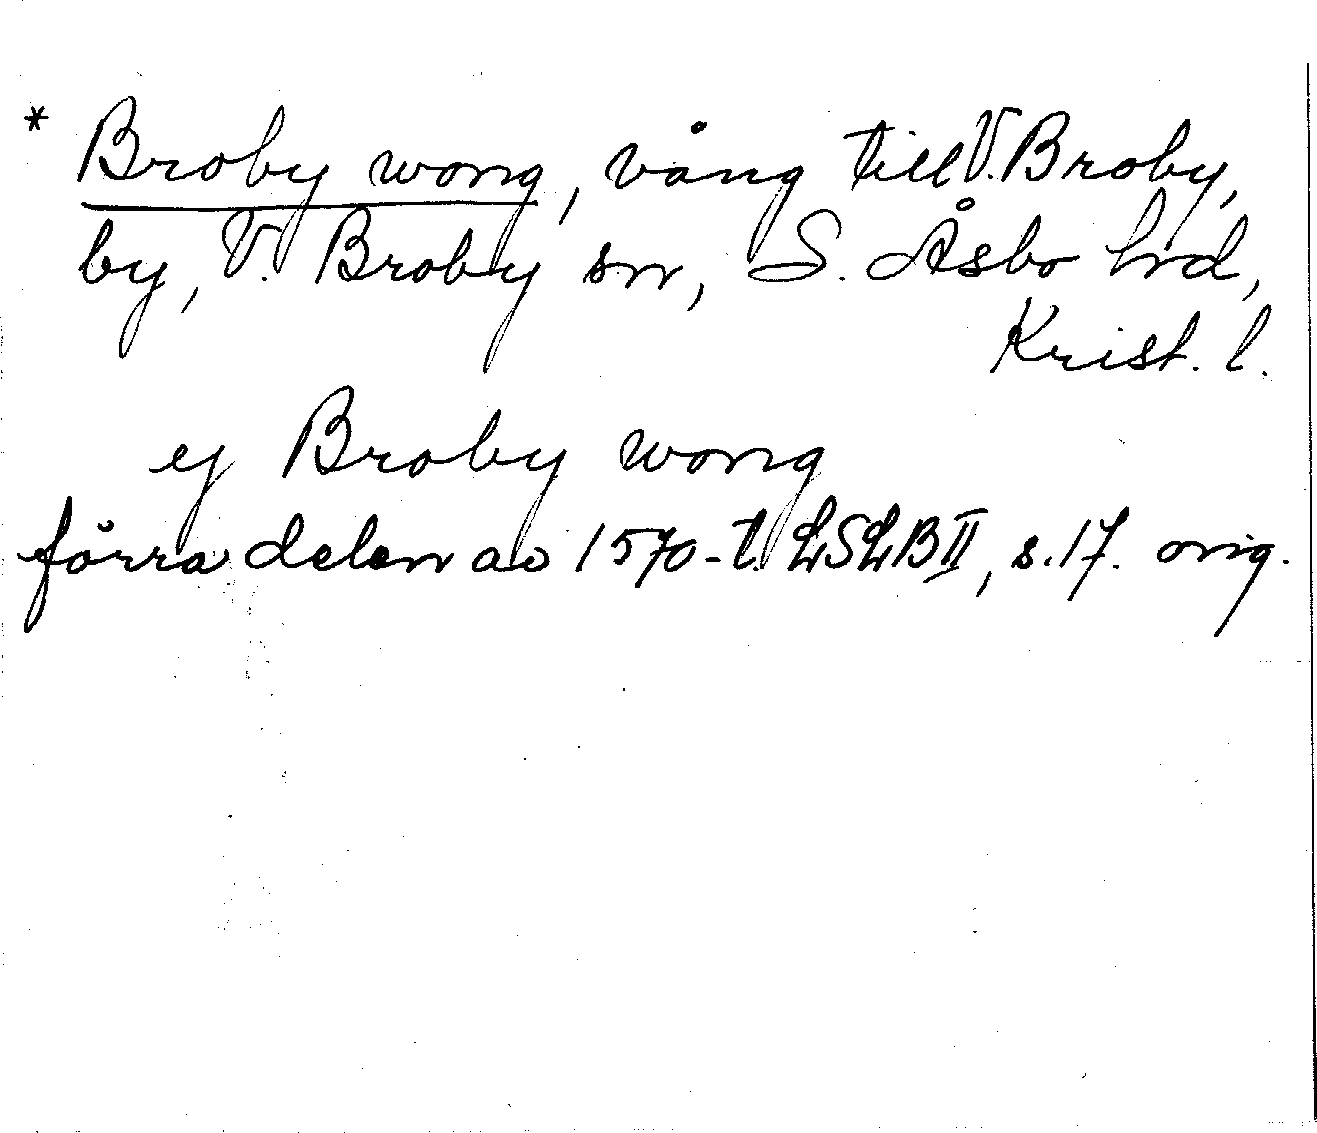 * Broby wong, vång till V. Broby,
by, V. Broby sn, S. Åsbo hrd,
Krist. l.
ey Broby wong
förra delen av 1570-t. LSLB II, s. 17. orig.